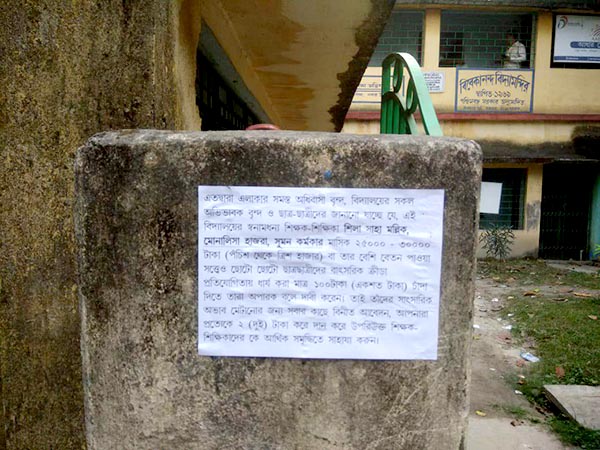 এতদ্বারা এলাকার সমস্ত অধিবাসী বৃন্দ, বিদ্যালয়ের সকল
অভিভাবক বৃন্দ ও ছাত্র-ছাত্রীদের জানানো যাচ্ছে যে, এই
বিদ্যালয়ের স্বনামধন্য শিক্ষক-শিক্ষিকা শিলা সাহা মল্লিক,
মোনালিসা হাজরা, সুমন কর্মকার মাসিক ২৫০০০ - ৩০০০০
টাকা (পঁচিশ থেকে ত্রিশ হাজার) বা তার বেশি বেতন পাওয়া
সত্তেও ছোটো ছোটো ছাত্রছাত্রীদের বাৎসরিক ক্রীড়া
প্রতিযোগিতায় ধার্য করা মাত্র ১০০টাকা (একশত টাকা) চাঁদা
দিতে তারা অপারক বলে দাবী করেন। তাই তাঁদের সাংসারিক
অভাব মেটানোর জন্য সবার কাছে বিনীত আবেদন, আপনারা
প্রত্যেকে ২ (দুই) টাকা করে দান করে উপরিউক্ত শিক্ষক-
শিক্ষিকাদের কে আর্থিক সমৃদ্ধিতে সাহায্য করুন।
বিবেকানন্দ বিদ্যামন্দির
স্থাপিত-১৯৬৯
পশ্চিমবঙ্গ সরকার অনুমোদিত